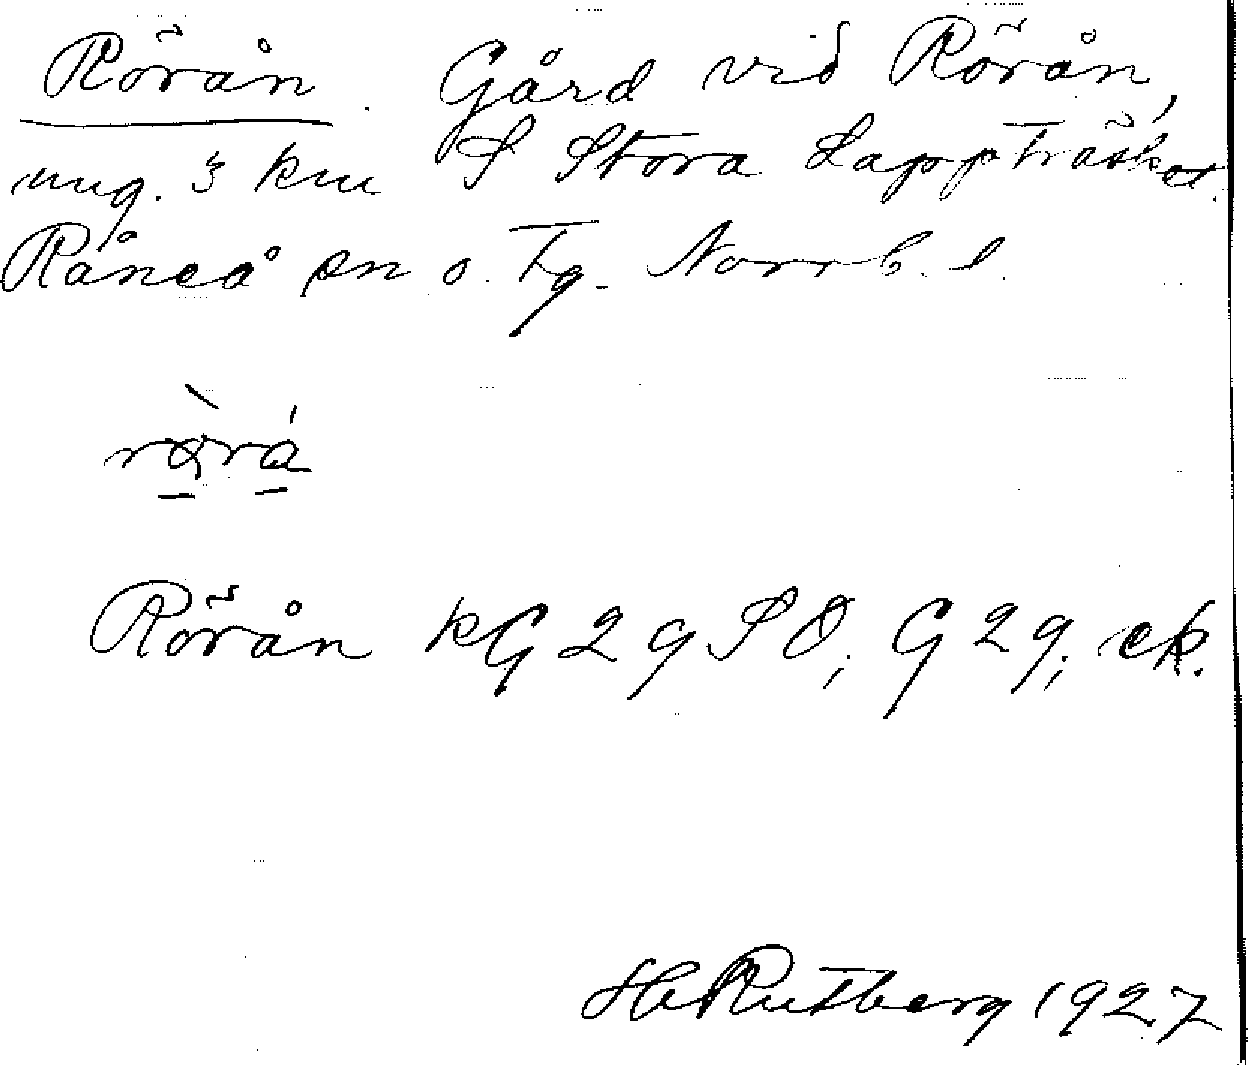 Rörån. Gård vid Rörån,
ung. 3 km S Stora Lappträsket.
Råneå sn o. tg. Norrb. l.
Rörån kG 29 SO; G 29; ek.
H Rutberg 1927